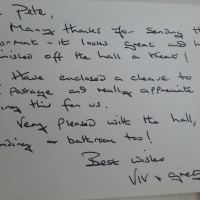 Pete,
Many thanks for sending th
ormat - it looks great and h
inished off the hall a treat!
Have enclosed a cheque to
postage and really appreciate
ing this for us.
Very pleased with the hall,
nding or bathroom too!
Best wishes
Viv & Greg